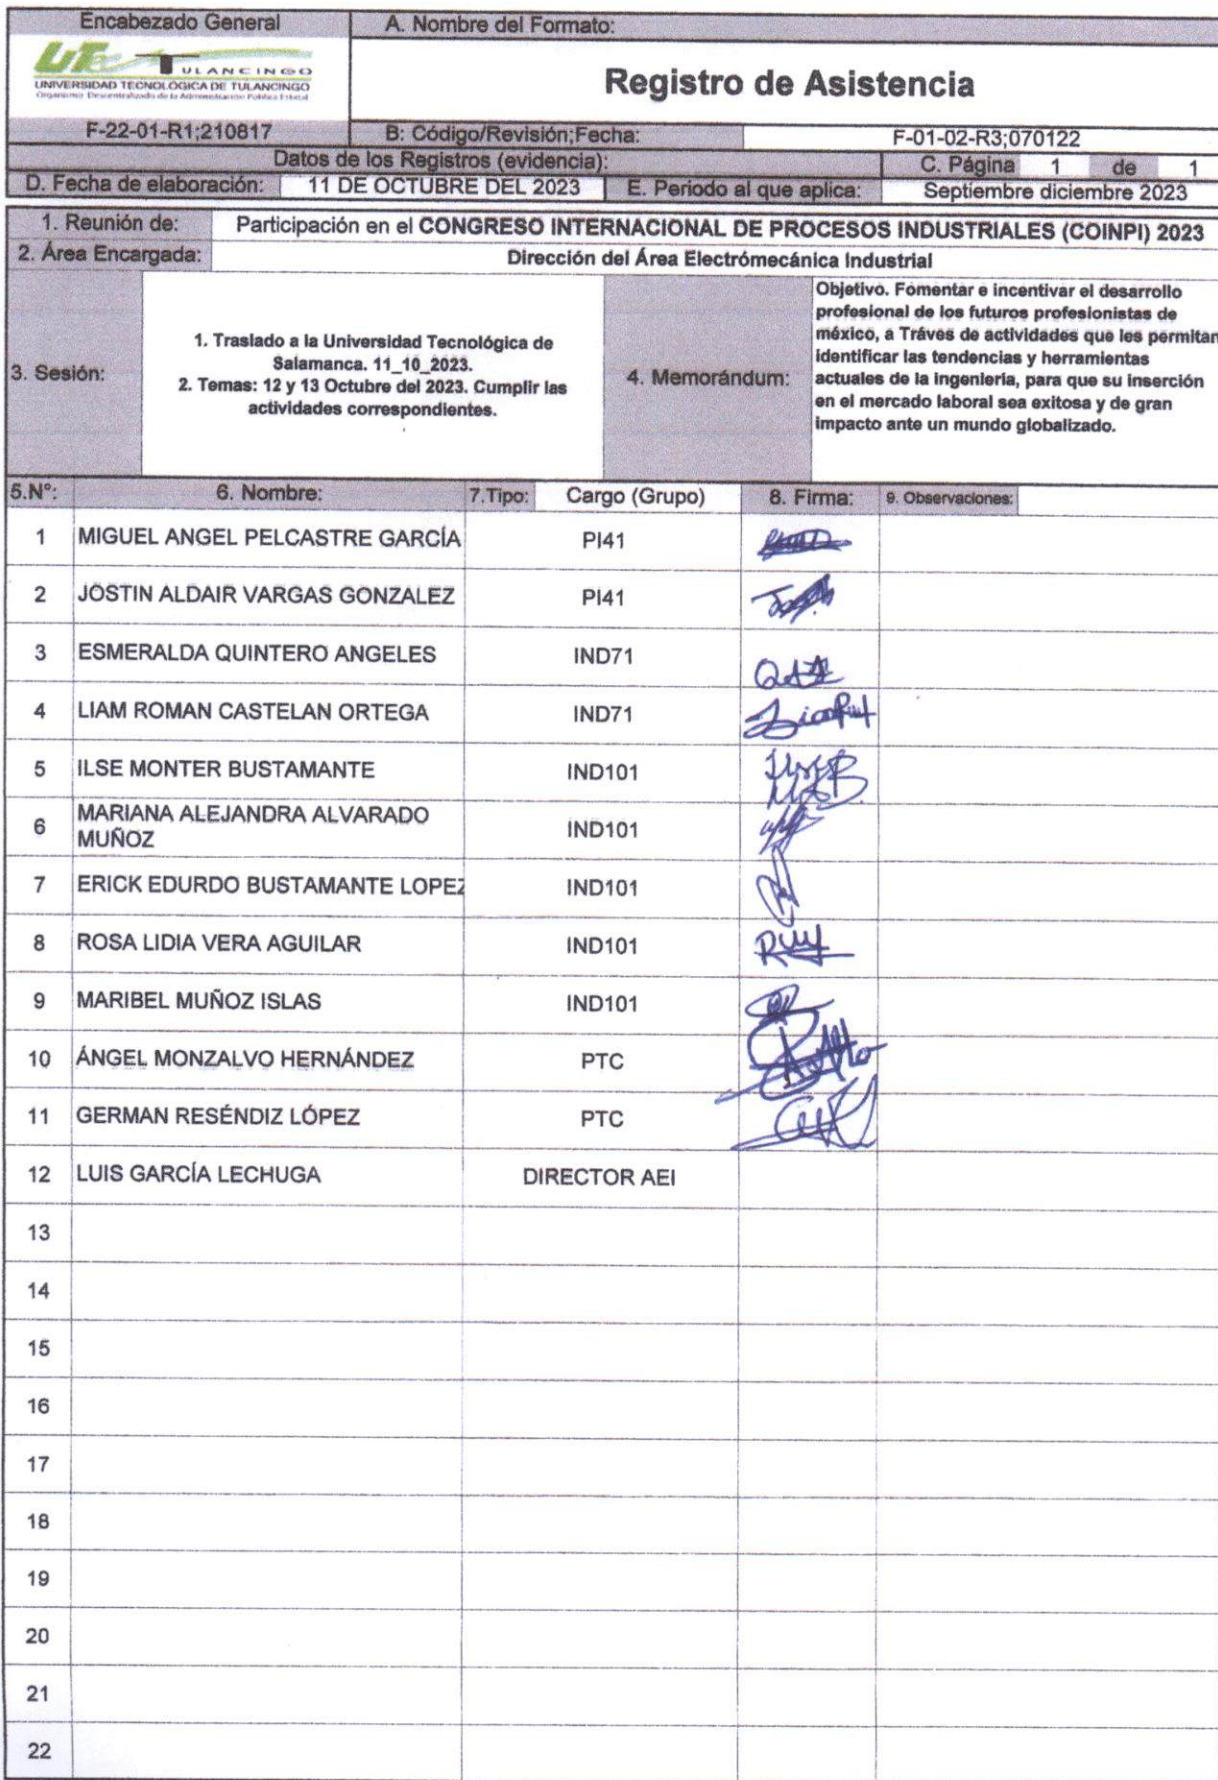 Encabezado General
A. Nombre del Formato:
UTec TULANCINGO
UNIVERSIDAD TECNOLÓGICA DE TULANCINGO
Organismo Descentralizado de la Administración Pública Estatal
Registro de Asistencia
F-22-01-R1;210817
B: Código/Revisión;Fecha:
F-01-02-R3;070122
Datos de los Registros (evidencia):
C. Página 1 de 1
D. Fecha de elaboración: 11 DE OCTUBRE DEL 2023 E. Periodo al que aplica: Septiembre diciembre 2023
1. Reunión de: Participación en el CONGRESO INTERNACIONAL DE PROCESOS INDUSTRIALES (COINPI) 2023
2. Área Encargada: Dirección del Área Electrómecánica Industrial
3. Sesión:
1. Traslado a la Universidad Tecnológica de
Salamanca. 11_10_2023.
2. Temas: 12 y 13 Octubre del 2023. Cumplir las
actividades correspondientes.
4. Memorándum:
Objetivo. Fomentar e incentivar el desarrollo
profesional de los futuros profesionistas de
méxico, a Tráves de actividades que les permitan
identificar las tendencias y herramientas
actuales de la ingeniería, para que su inserción
en el mercado laboral sea exitosa y de gran
impacto ante un mundo globalizado.
5.N°: 6. Nombre: 7.Tipo: Cargo (Grupo) 8. Firma: 9. Observaciones:
1 MIGUEL ANGEL PELCASTRE GARCÍA PI41
2 JOSTIN ALDAIR VARGAS GONZALEZ PI41
3 ESMERALDA QUINTERO ANGELES IND71
4 LIAM ROMAN CASTELAN ORTEGA IND71
5 ILSE MONTER BUSTAMANTE IND101
6 MARIANA ALEJANDRA ALVARADO
MUÑOZ IND101
7 ERICK EDURDO BUSTAMANTE LOPEZ IND101
8 ROSA LIDIA VERA AGUILAR IND101
9 MARIBEL MUÑOZ ISLAS IND101
10 ÁNGEL MONZALVO HERNÁNDEZ PTC
11 GERMAN RESÉNDIZ LÓPEZ PTC
12 LUIS GARCÍA LECHUGA DIRECTOR AEI
13
14
15
16
17
18
19
20
21
22